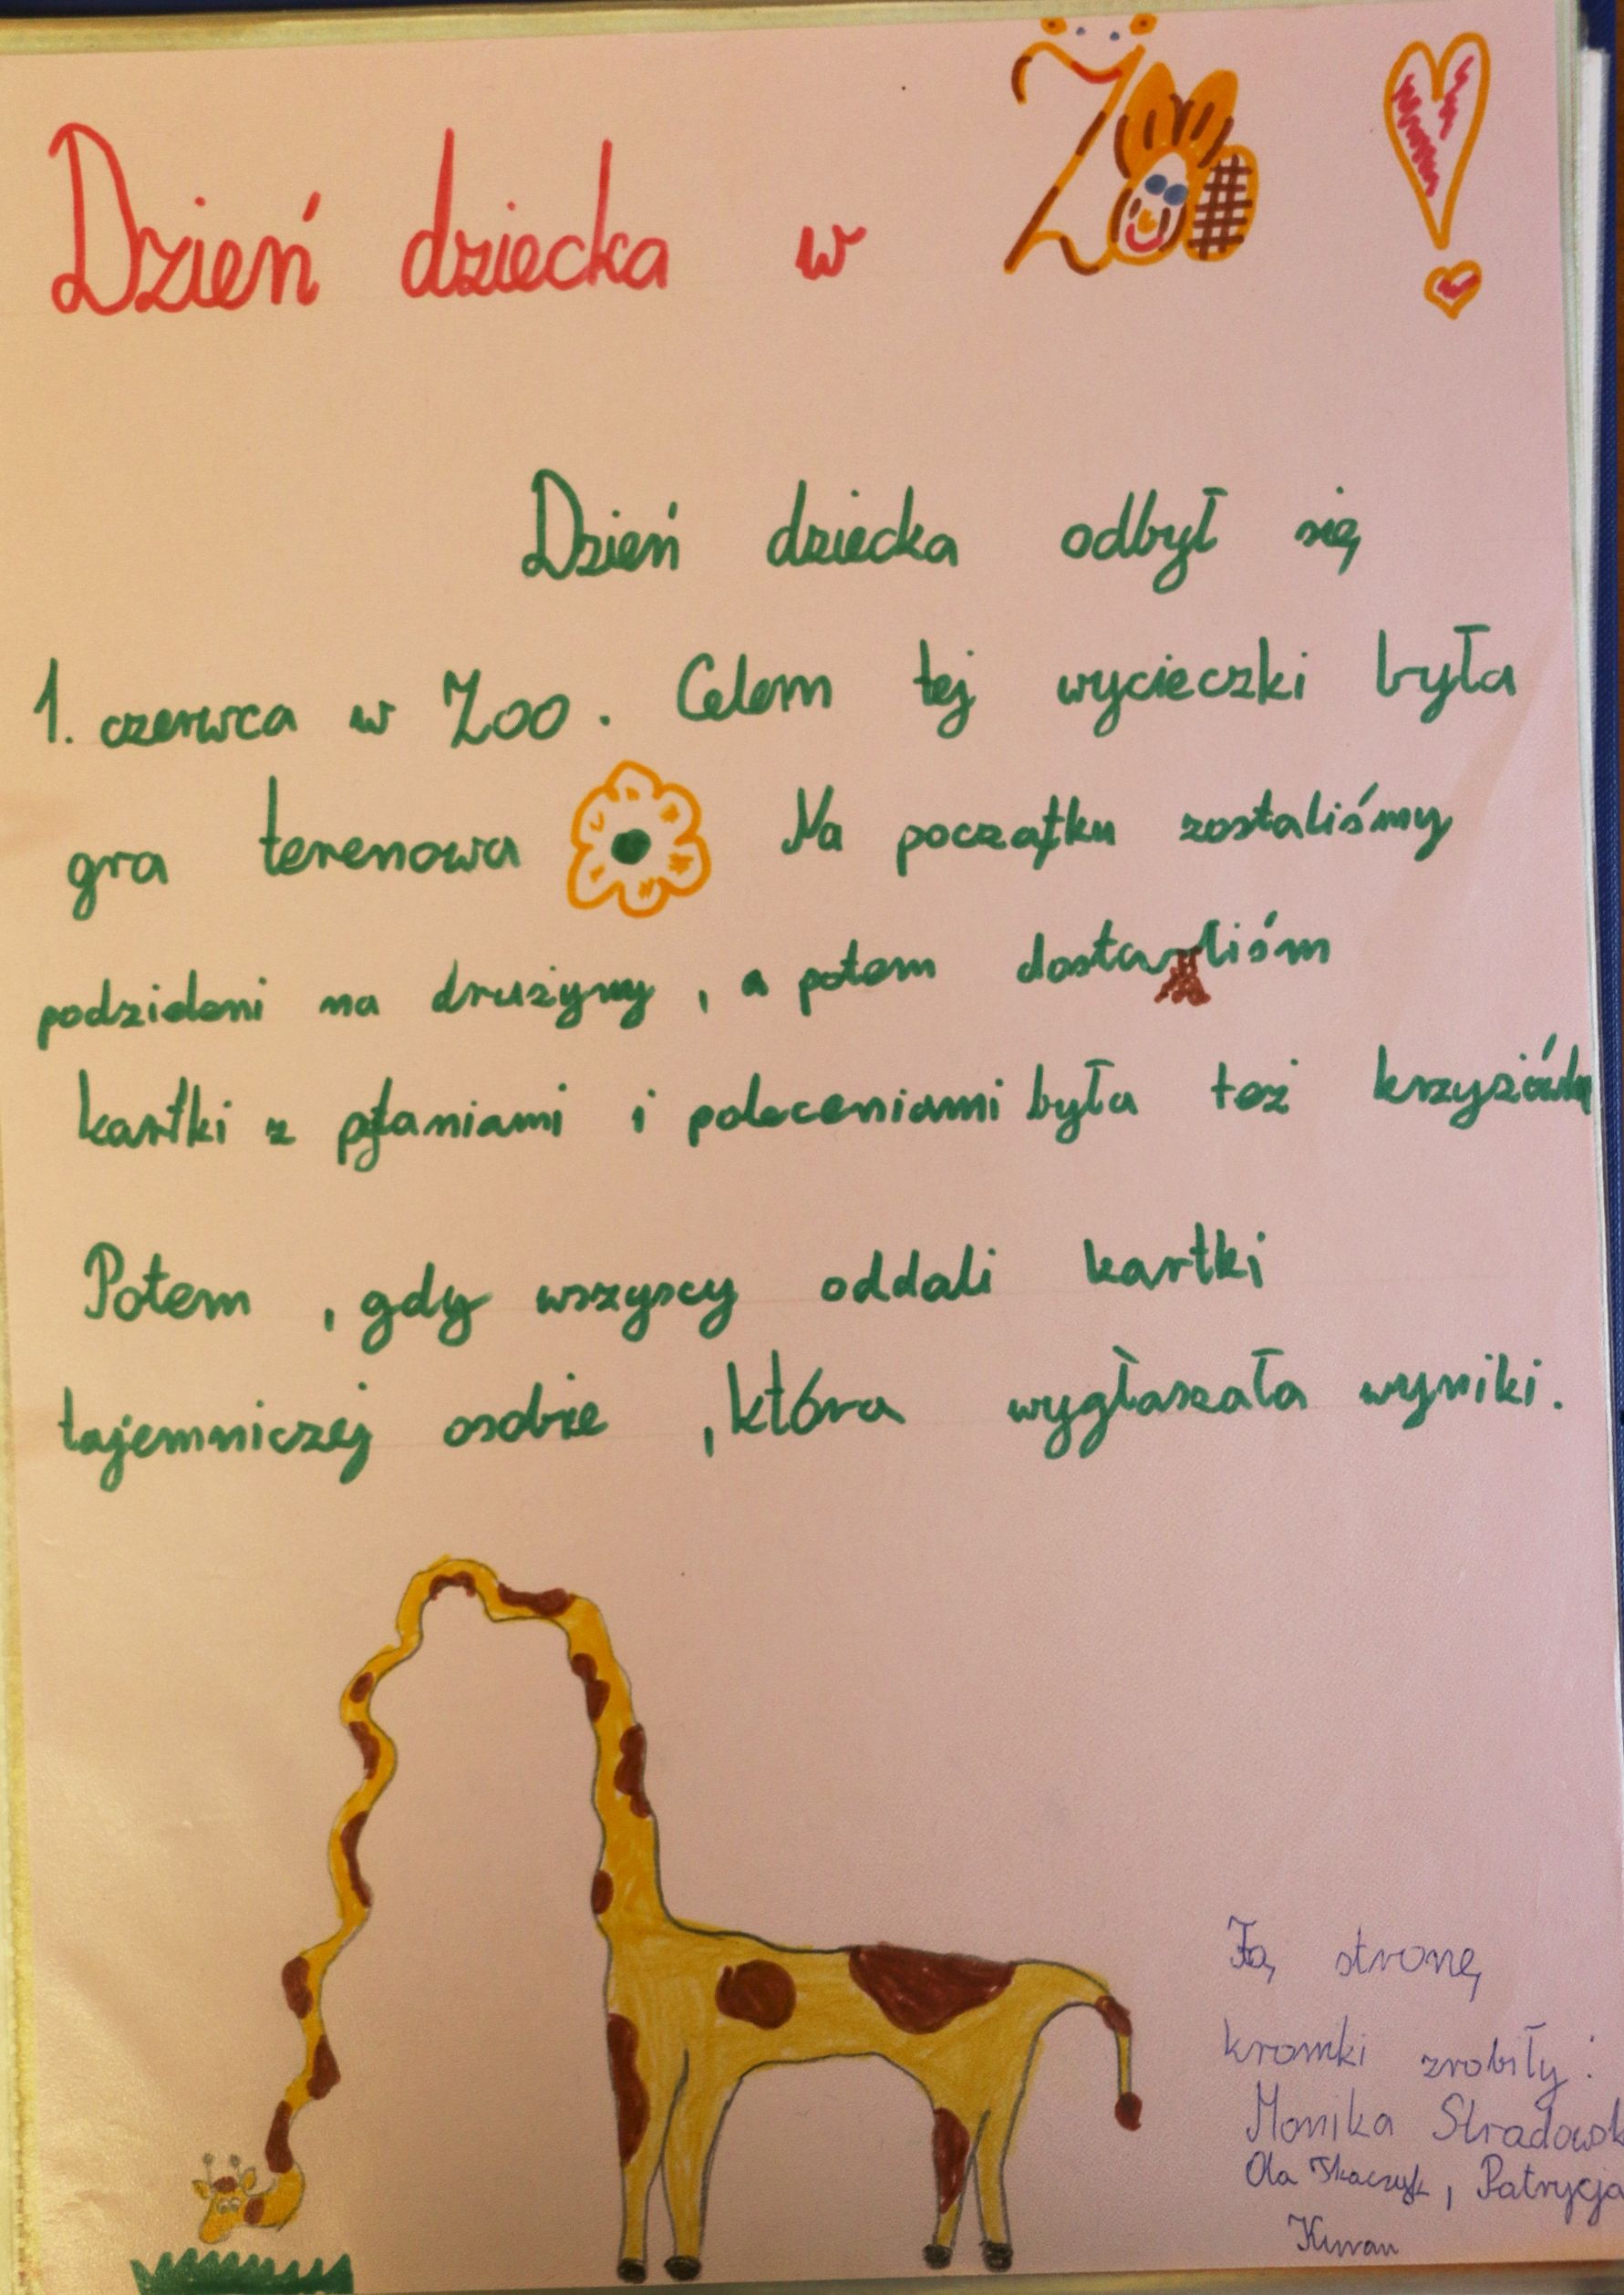 Dzień dziecka w Zoo !
Dzień dziecka odbył się
1. czerwca w Zoo. Celem tej wycieczki była
gra terenowa Na początku zostaliśmy
podzieleni na drużyny, a potem
kartki z pytaniami i poleceniami była też krzyżówka
Potem, gdy wszyscy oddali kartki
tajemniczej osobie, która wygłaszała wyniki.
Tą stronę
kroniki zrobiły:
Monika Stradowsk
Ola Tkaczyk, Patrycja